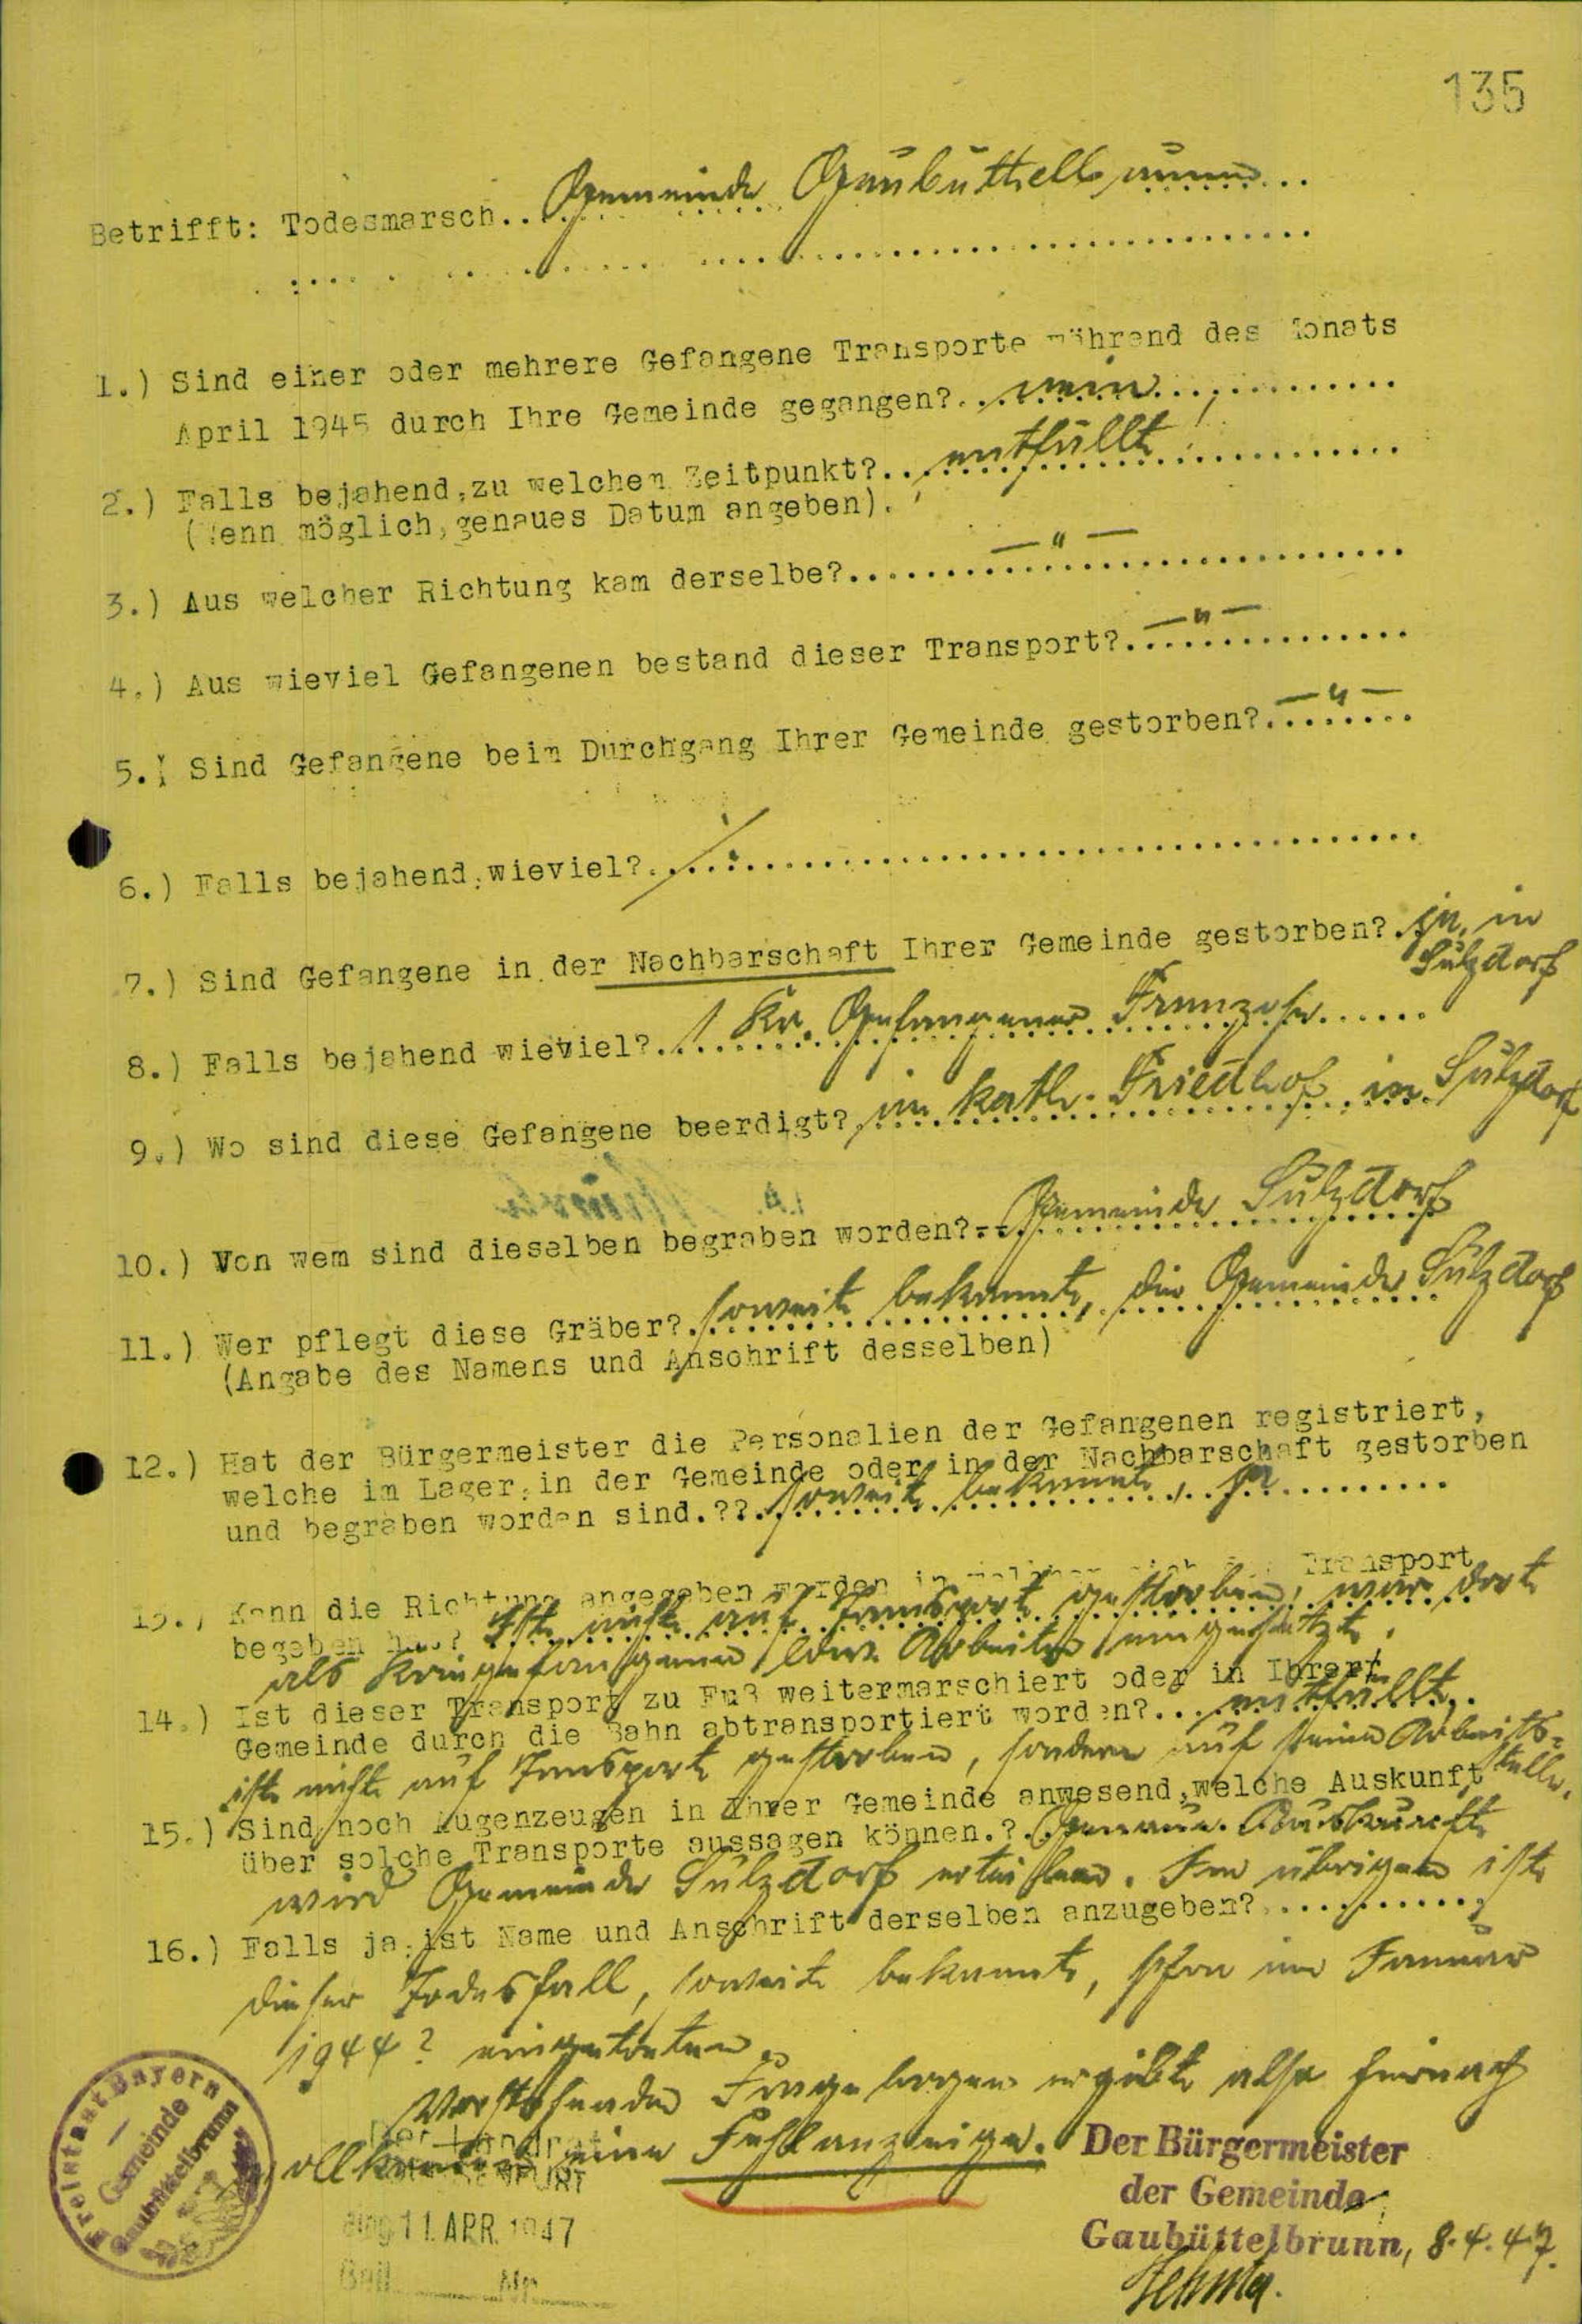 135
Betrifft: Todesmarsch.. Gemeinde Gaubüttelbrunn...
1.) Sind einer oder mehrere Gefangene Transporte während des Monats
April 1945 durch Ihre Gemeinde gegangen?.. nein
2.) Falls bejahend,zu welchem Zeitpunkt?.. entfällt
(Wenn möglich,genaues Datum angeben).
3.) Aus welcher Richtung kam derselbe?.... — " —
4.) Aus wieviel Gefangenen bestand dieser Transport?. — " —
5.) Sind Gefangene beim Durchgang Ihrer Gemeinde gestorben?. — " —
6.) Falls bejahend,wieviel?. ·/·
7.) Sind Gefangene in der Nachbarschaft Ihrer Gemeinde gestorben?. ja, in
Sulzdorf
8.) Falls bejahend wieviel?.. 1 Kr. Gefangener Franzose
9.) Wo sind diese Gefangene beerdigt?. im kath. Friedhof in Sulzdorf
10.) Von wem sind dieselben begraben worden?.. Gemeinde Sulzdorf
11.) Wer pflegt diese Gräber?. soweit bekannt, die Gemeinde Sulzdorf
(Angabe des Namens und Anschrift desselben)
12.) Hat der Bürgermeister die Personalien der Gefangenen registriert,
welche im Lager,in der Gemeinde oder in der Nachbarschaft gestorben
und begraben worden sind.??. soweit bekannt, ja
13.) Kann die Richtung angegeben werden in welcher sich Transport
begeben hat? Ist nicht auf Transport gestorben, war dort
als Kriegsgefangener Arbeiter eingesetzt.
14.) Ist dieser Transport zu Fuß weitermarschiert oder in Ihrer
Gemeinde durch die Bahn abtransportiert worden?.. entfällt..
ist nicht auf Transport gestorben, sondern auf seiner Arbeits=
stelle.
15.) Sind noch Augenzeugen in Ihrer Gemeinde anwesend,welche Auskunft
über solche Transporte aussagen können.?. Genaue Auskunft
wird Gemeinde Sulzdorf erteilen. Im übrigen ist
16.) Falls ja,ist Name und Anschrift derselben anzugeben?............
dieser Todesfall, soweit bekannt, schon im Januar
1944? eingetreten.
Vorstehender Fragebogen ergibt also hiernach
vollkommen eine Fehlanzeige.
Freistaat Bayern
Gemeinde
Gaubüttelbrunn
Der Landrat
Eing 11. APR. 1947
Beil. Nr.
Der Bürgermeister
der Gemeinde
Gaubüttelbrunn, 8.4.47.